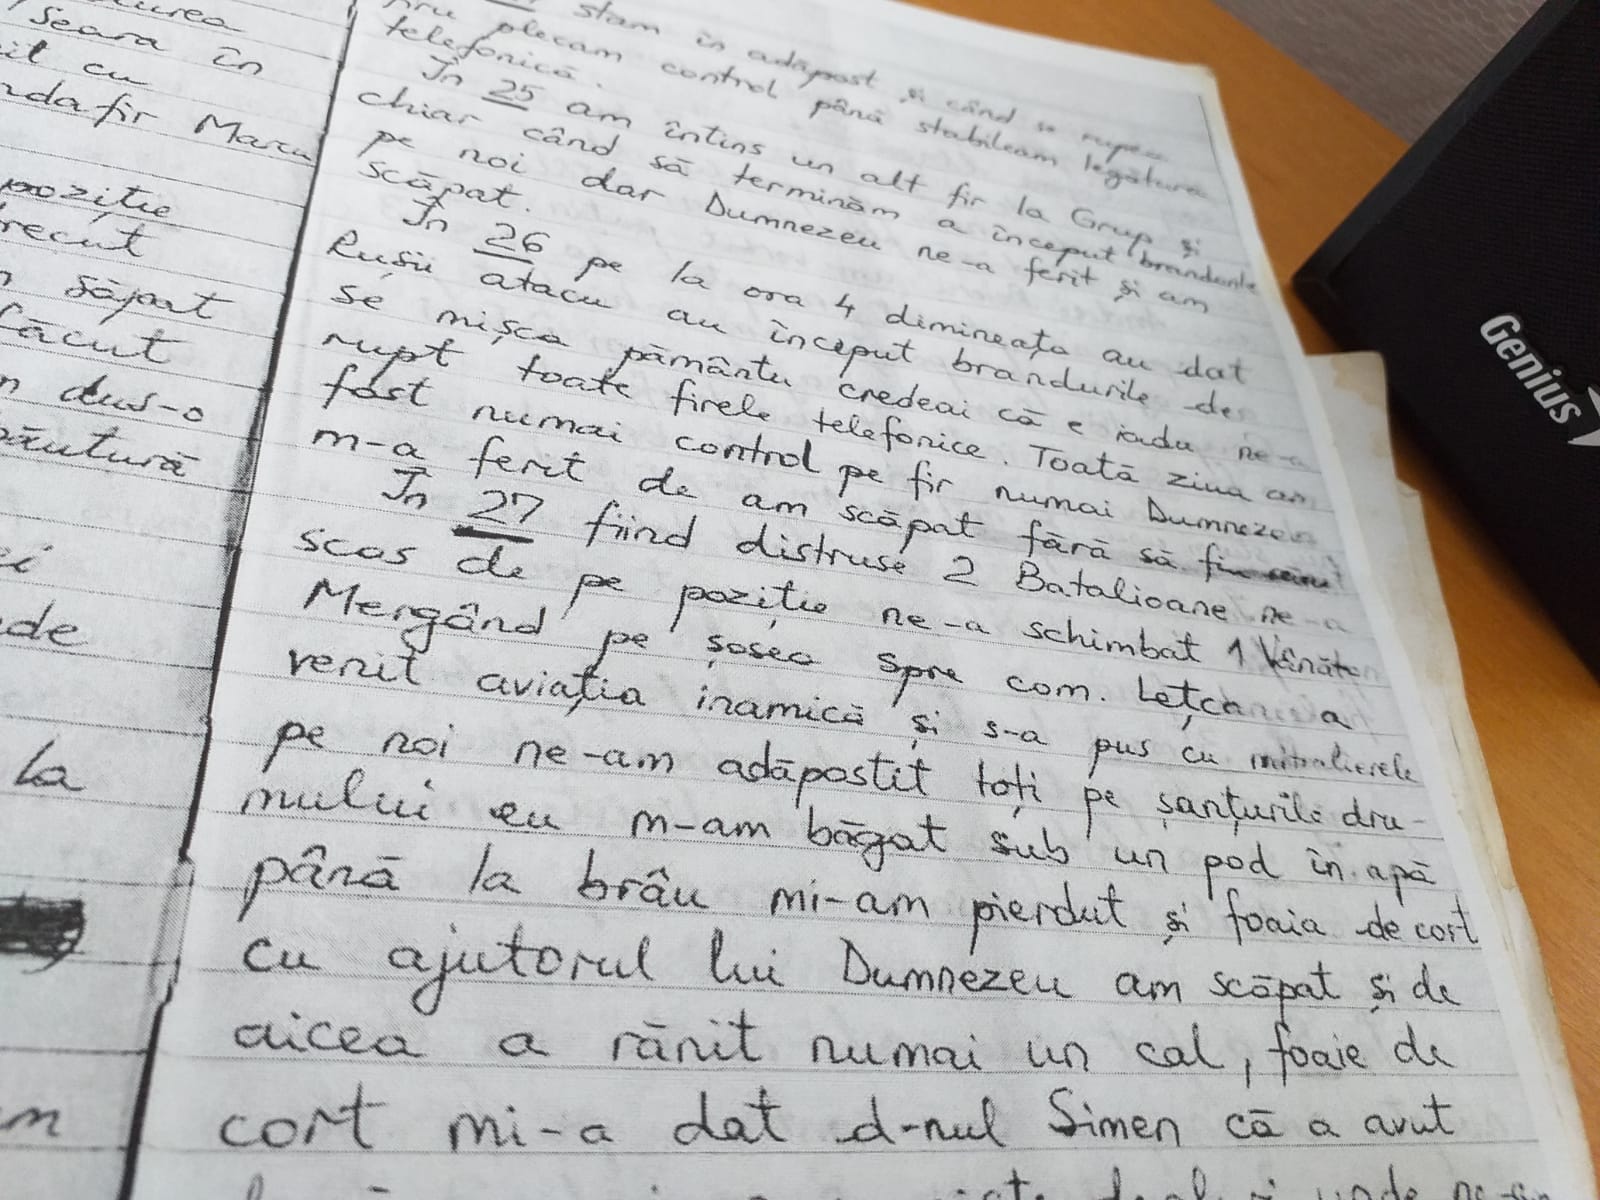 seara în
cu
ndafir Marcu
poziție
recut
săpat
făcut
dus-o
părutură
de
la
stam în adăpost și când se rupea
plecam control până stabileam legătura
telefonică.
În 25 am întins un alt fir la Grup și
chiar când să terminăm a început brandurile
pe noi dar Dumnezeu ne-a ferit și am
scăpat.
În 26 pe la ora 4 dimineața au dat
Rușii atacu au început brandurile de
se mișca pământu credeai că e iadu ne-a
rupt toate firele telefonice. Toată ziua am
fost numai control pe fir numai Dumnezeu
m-a ferit de am scăpat fără să fiu
În 27 fiind distruse 2 Batalioane ne-a
scos de pe poziție ne-a schimbat 1 Vânători
Mergând pe șosea spre com. Lețcani a
venit aviația inamică și s-a pus cu mitralierele
pe noi ne-am adăpostit toți pe șanțurile dru-
mului eu m-am băgat sub un pod în apă
până la brâu mi-am pierdut și foaia de cort
cu ajutorul lui Dumnezeu am scăpat și de
aicea a rănit numai un cal, foaie de
cort mi-a dat d-nul Simen că a avut
Genius